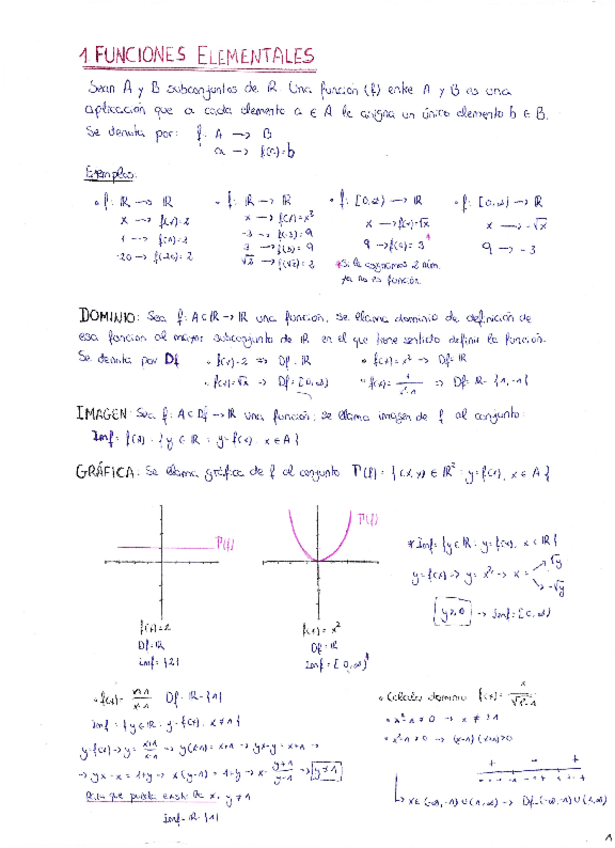 1 FUNCIONES ELEMENTALES
Sean A y B subconjuntos de R. Una función (f) entre A y B es una
aplicación que a cada elemento a ∈ A le asigna un único elemento b ∈ B.
Se denota por: f: A → B
a → f(a)=b
Ejemplos:
• f: R → R
x → f(x)=2
1 → f(1)=2
-20 → f(-20)=2
• f: R → R
x → f(x)=x²
-3 → f(-3)=9
3 → f(3)=9
√2 → f(√2)=2
• f: [0,∞) → R
x → f(x)=√x
9 → f(9)=3
*Si le asignamos 2 núm.
ya no es función.
• f: [0,∞) → R
x → -√x
9 → -3
DOMINIO: Sea f: A⊂R → R una función, se llama dominio de definición de
esa función al mayor subconjunto de R en el que tiene sentido definir la función.
Se denota por Df
• f(x)=2 ⇒ Df=R
• f(x)=x² → Df=R
• f(x)=√x ⇒ Df=[0,∞)
• f(x)=1/x²-1 ⇒ Df=R-{1,-1}
IMAGEN: Sea f: A⊂Df → R una función: se llama imagen de f al conjunto:
Imf= f(A)= {y ∈ R : y=f(x), x∈A}
GRÁFICA: Se llama gráfica de f al conjunto Γ(f)= {(x,y) ∈ R² : y=f(x), x ∈ A}
Γ(f)
f(x)=2
Df=R
imf={2}
Γ(f)
f(x)= x²
Df=R
Imf=[0,∞)
* Imf={y∈R : y=f(x), x∈R}
y=f(x) → y= x² → x= √y
-√y
y≥0 → Imf=[0,∞)
• f(x)= x+1/x-1 Df=R-{1}
Imf= {y∈R : y=f(x), x≠1}
y=f(x) → y= x+1/x-1 → y(x-1)=x+1 → yx-y=x+1 →
→ yx-x=1+y → x(y-1)=1+y → x= y+1/y-1 → y≠1
Para que pueda existir la x, y≠1
Imf=R-{1}
• Calcular dominio f(x)= x/√x²-1
• x²-1≠0 → x≠±1
• x²-1>0 → (x-1)(x+1)>0
+ - +
-1 1
↳ x∈(-∞,-1)∪(1,∞) → Df=(-∞,-1)∪(1,∞)
1